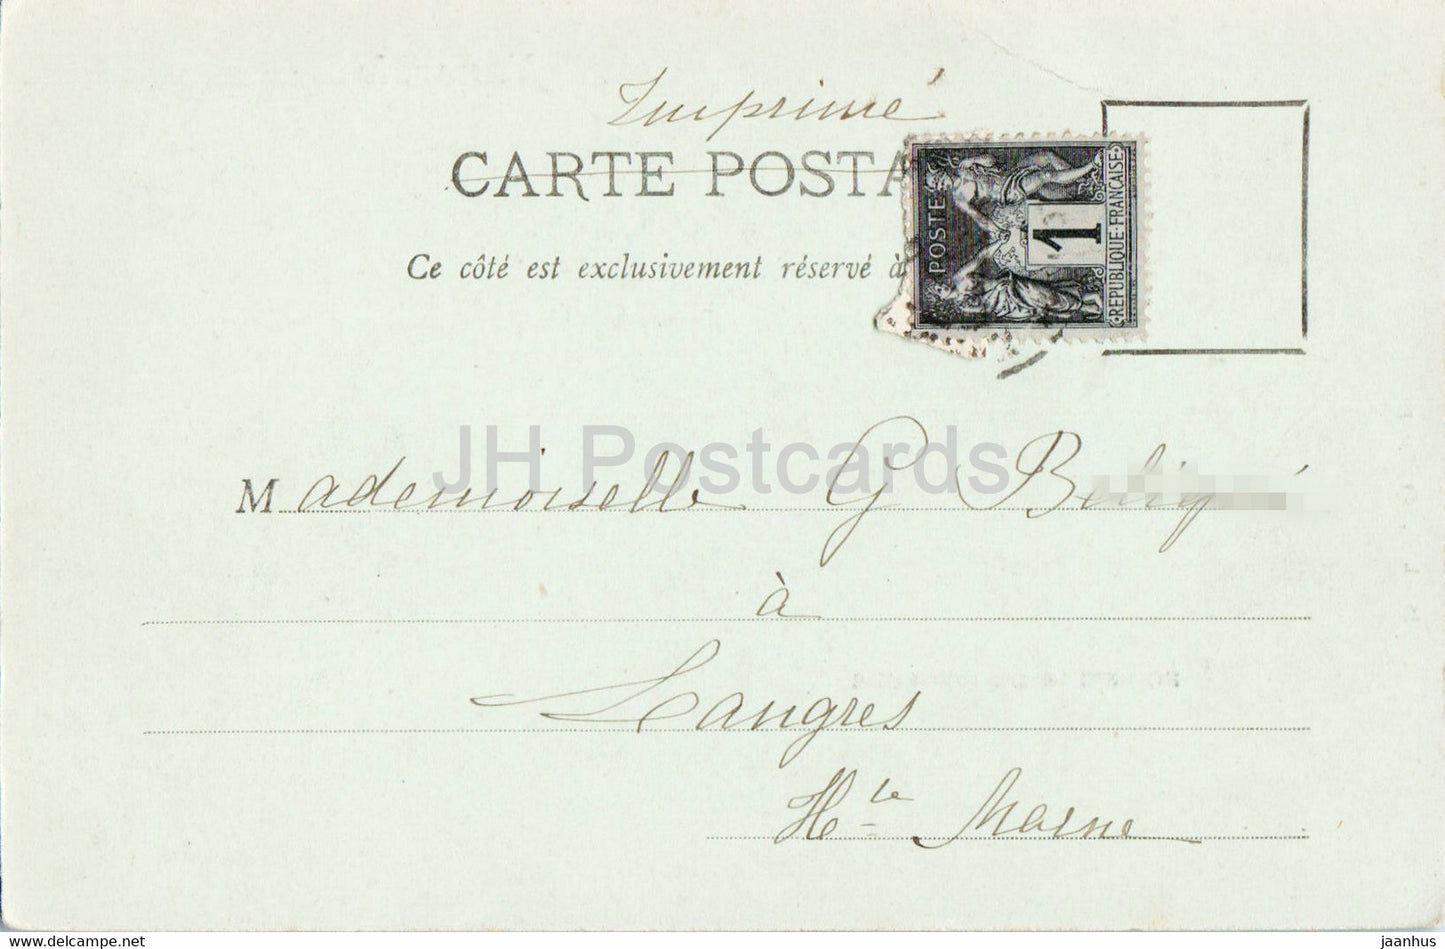 Imprimé
CARTE POSTA
Ce côté est exclusivement réservé à
POSTES
1
REPUBLIQUE FRANÇAISE
JH Postcards
Mademoiselle G
à
Langres
Hte Marne
delcampe.net
jaanhus